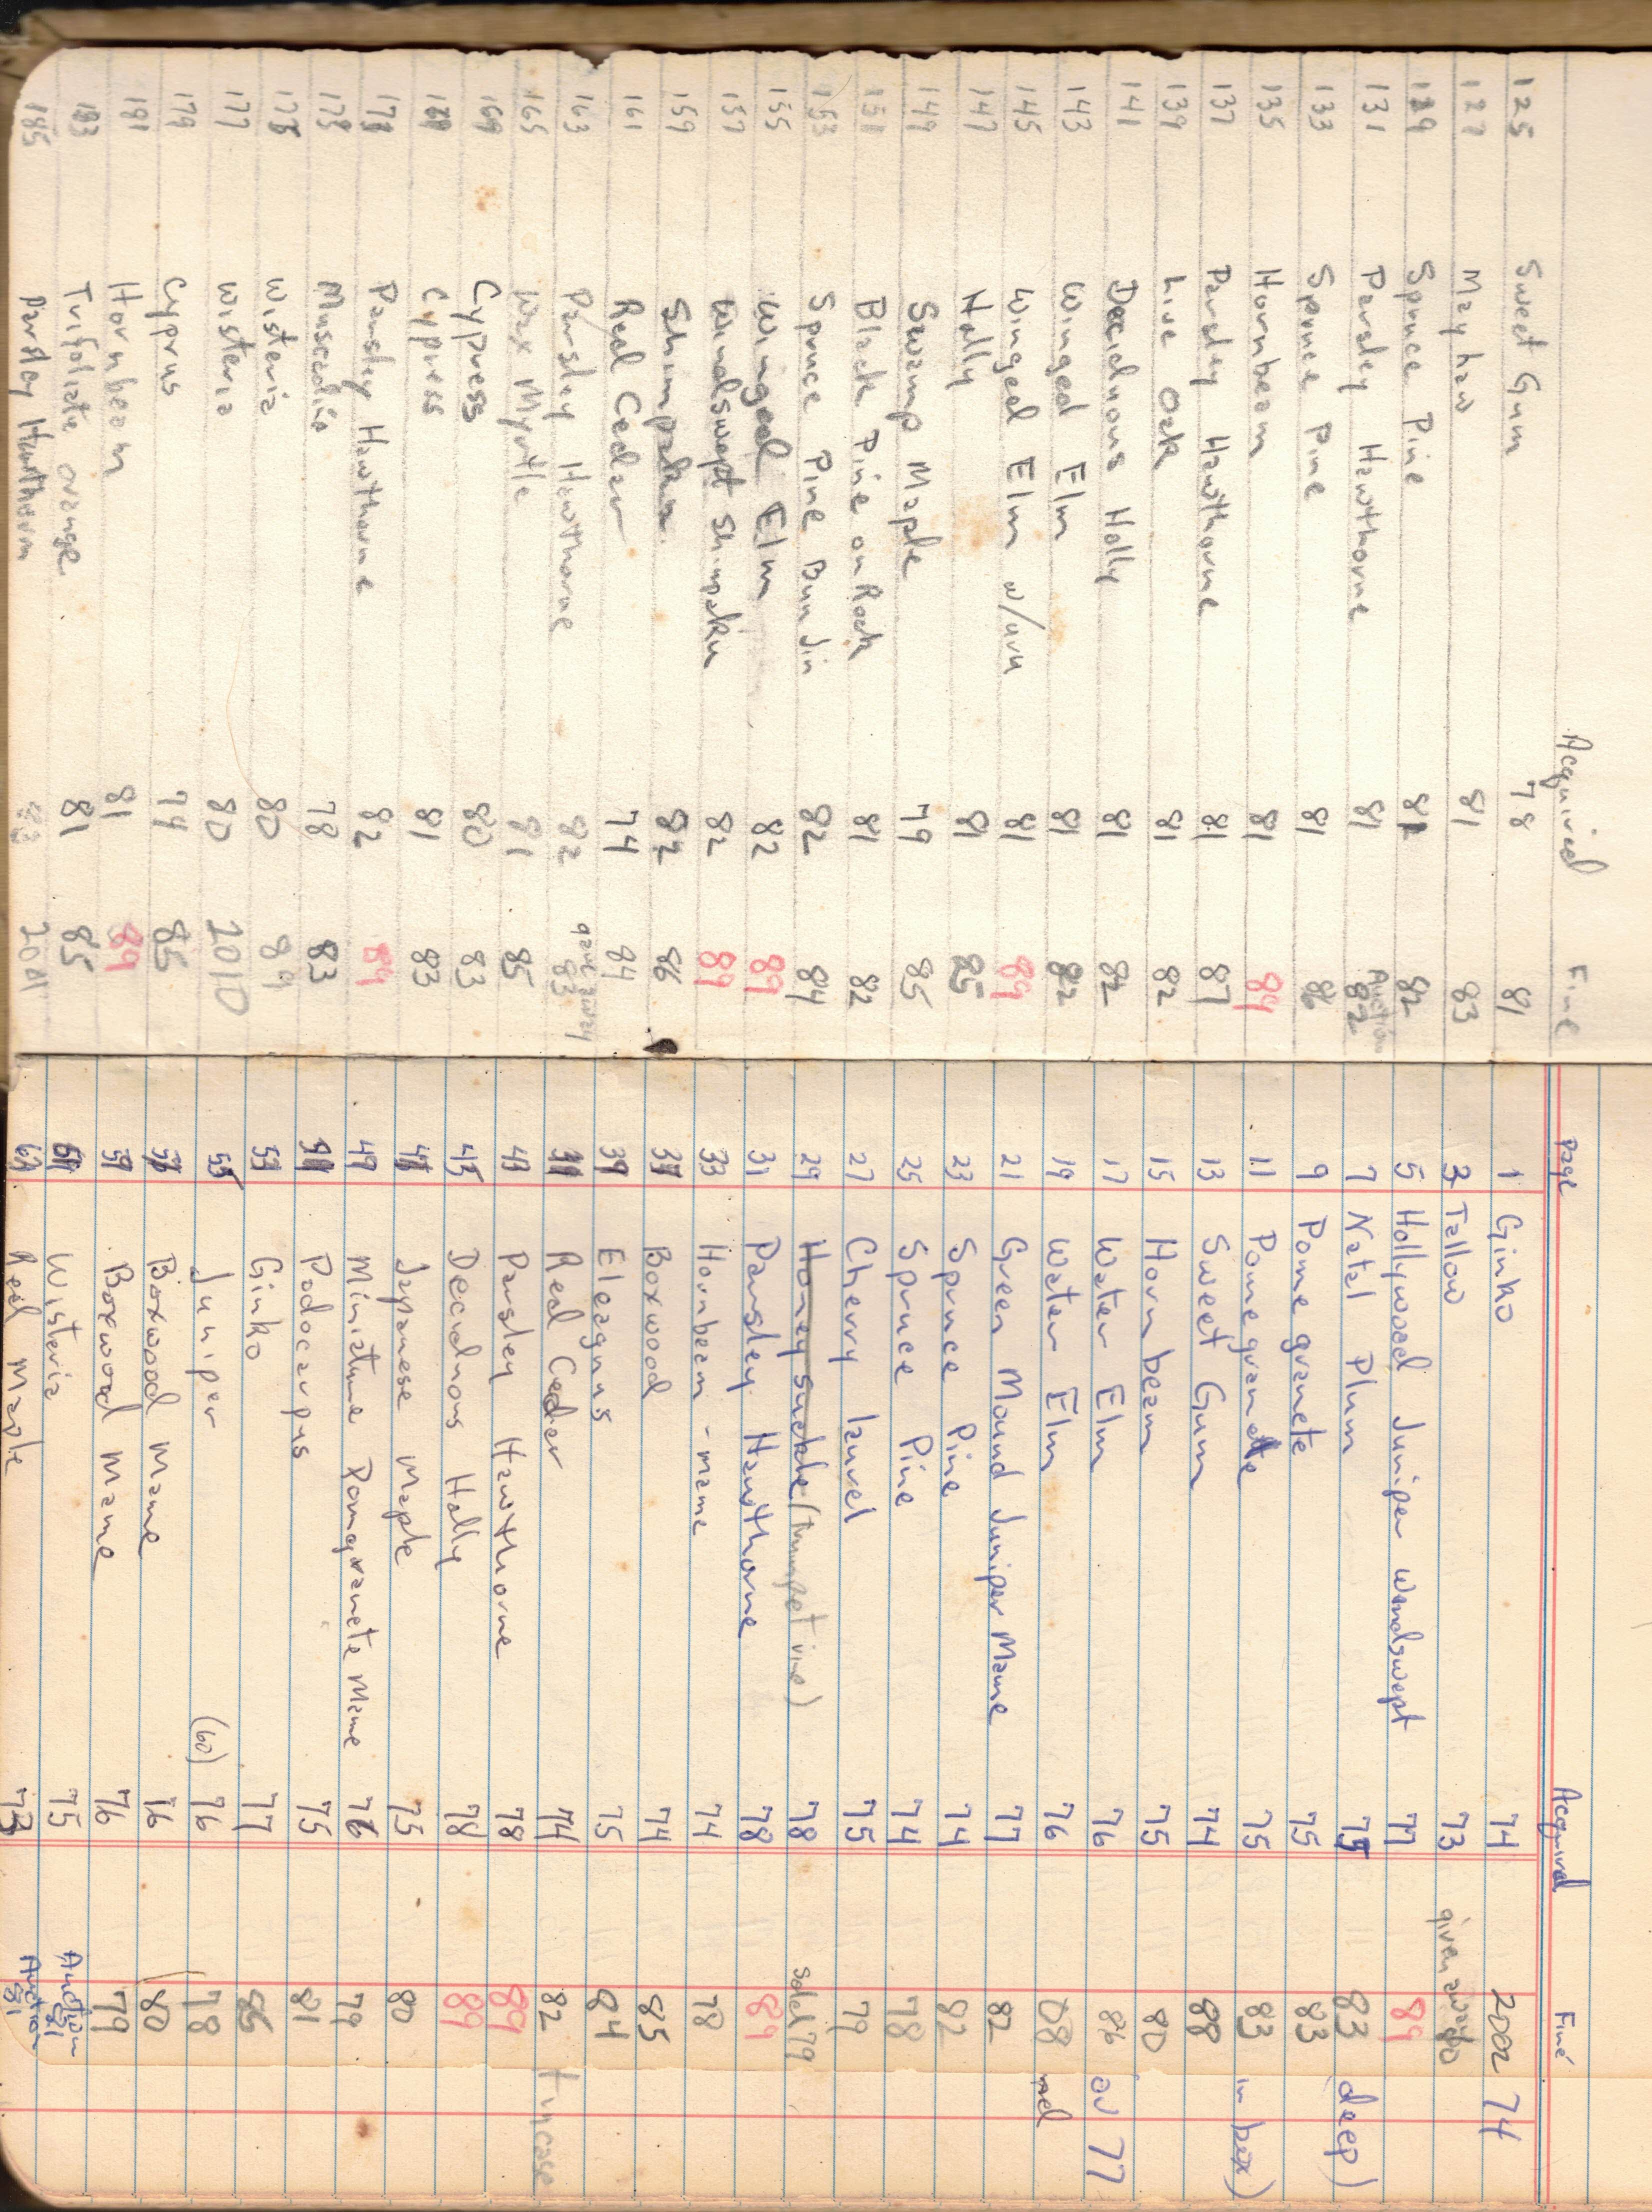 Acquired Fine
125 Sweet Gum 78 81
127 Mayhaw 81 83
129 Spruce Pine 81 82
131 Parsley Hawthorne 81 Auction 82
133 Spruce Pine 81 86
135 Hornbeam 81 89
137 Parsley Hawthorne 81 87
139 Live Oak 81 82
141 Deciduous Holly 81 82
143 Winged Elm 81 82
145 Winged Elm w/uru 81 89
147 Holly 81 85
149 Swamp Maple 79 85
151 Black Pine on Rock 81 82
153 Spruce Pine Bunjin 82 84
155 Winged Elm 82 89
157 Windswept Shimpaku 82 89
159 Shimpaku 82 86
161 Red Cedar 74 84
163 Parsley Hawthorne 82 gave away 83
165 Wax Myrtle 81 85
Cypress 80 83
169 Cypress 81 83
171 Parsley Hawthorne 82 89
173 Muscadine 78 83
175 Wisteria 80 89
177 Wisteria 80 2010
179 Cyprus 74 85
181 Hornbeam 81 89
183 Trifoliate orange 81 85
185 Parsley Hawthorn 83 2001
page Acquired Fine
1 Ginko 74 2002 74
3 Tallow 73 given away 80
5 Hollywood Juniper Windswept 77 89
7 Natal Plum 75 83 deep)
9 Pomegranete 75 83
11 Pomegranette 75 83 in box)
13 Sweet Gum 74 88
15 Hornbeam 75 80
17 Water Elm 76 86 77
19 Water Elm 76 08
21 Green Mound Juniper Mame 77 82
23 Spruce Pine 74 82
25 Spruce Pine 74 78
27 Cherry laurel 75 79
29 Honeysuckle (trumpet vine) 78 sold 79
31 Parsley Hawthorne 78 89
33 Hornbeam - mame 74 78
37 Boxwood 74 85
39 Eleagnus 75 84
Red Cedar 74 82
43 Parsley Hawthorne 78 89
45 Deciduous Holly 78 89
47 Japanese Maple 75 80
49 Miniature Pomgranete Mame 76 79
51 Podocarpus 75 81
53 Ginko 77 86
55 Juniper (60) 76 78
57 Boxwood Mame 76 80
59 Boxwood Mame 76 79
61 Wisteria 75 Auction 81
63 Red Maple 73 Auction 81